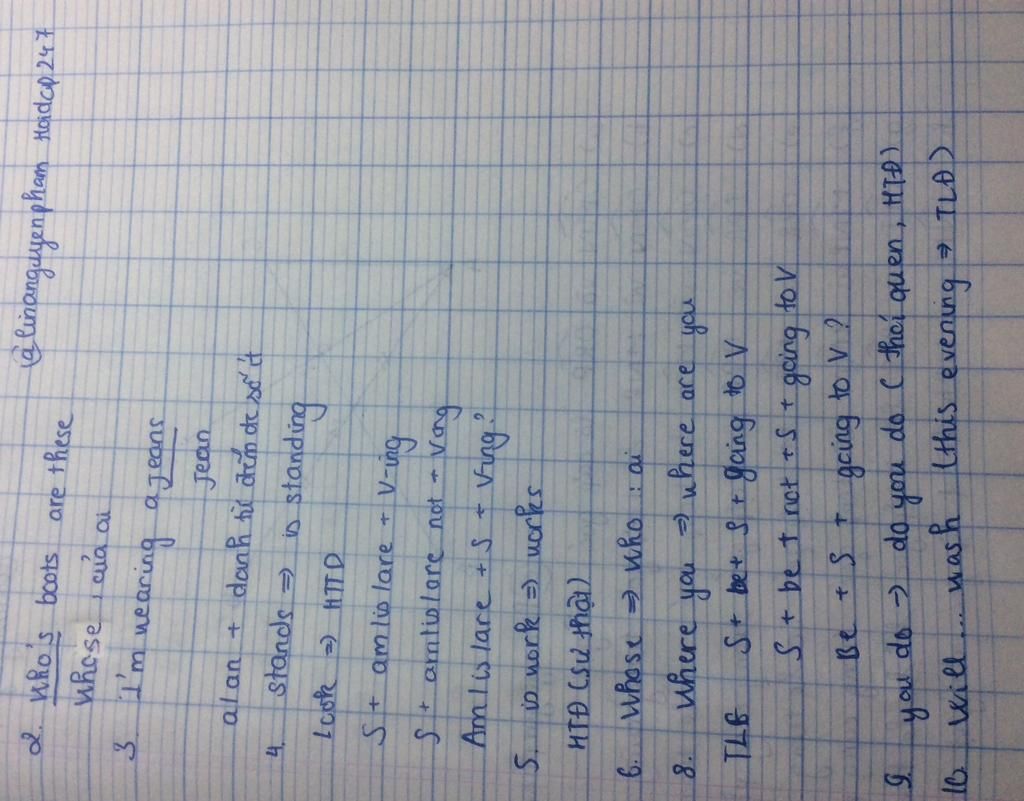 @linanguyenpham Hoidap247
2. Who's boots are these
Whose : của ai
3 I'm wearing a jeans
jean
a/an + danh từ đếm đc số ít
4. stands => is standing
Look => HTTD
S + am/is/are + V-ing
S + am/is/are not + Ving
Am/is/are + S + Ving?
5. is work => works
HTĐ (sự thật)
6. Whose => Who : ai
8. Where you => where are you
TLG S + be + S + going to V
S + be + not + S + going to V
Be + S + going to V ?
9. you do -> do you do ( thói quen, HTĐ)
10. Will ... wash (this evening => TLĐ)